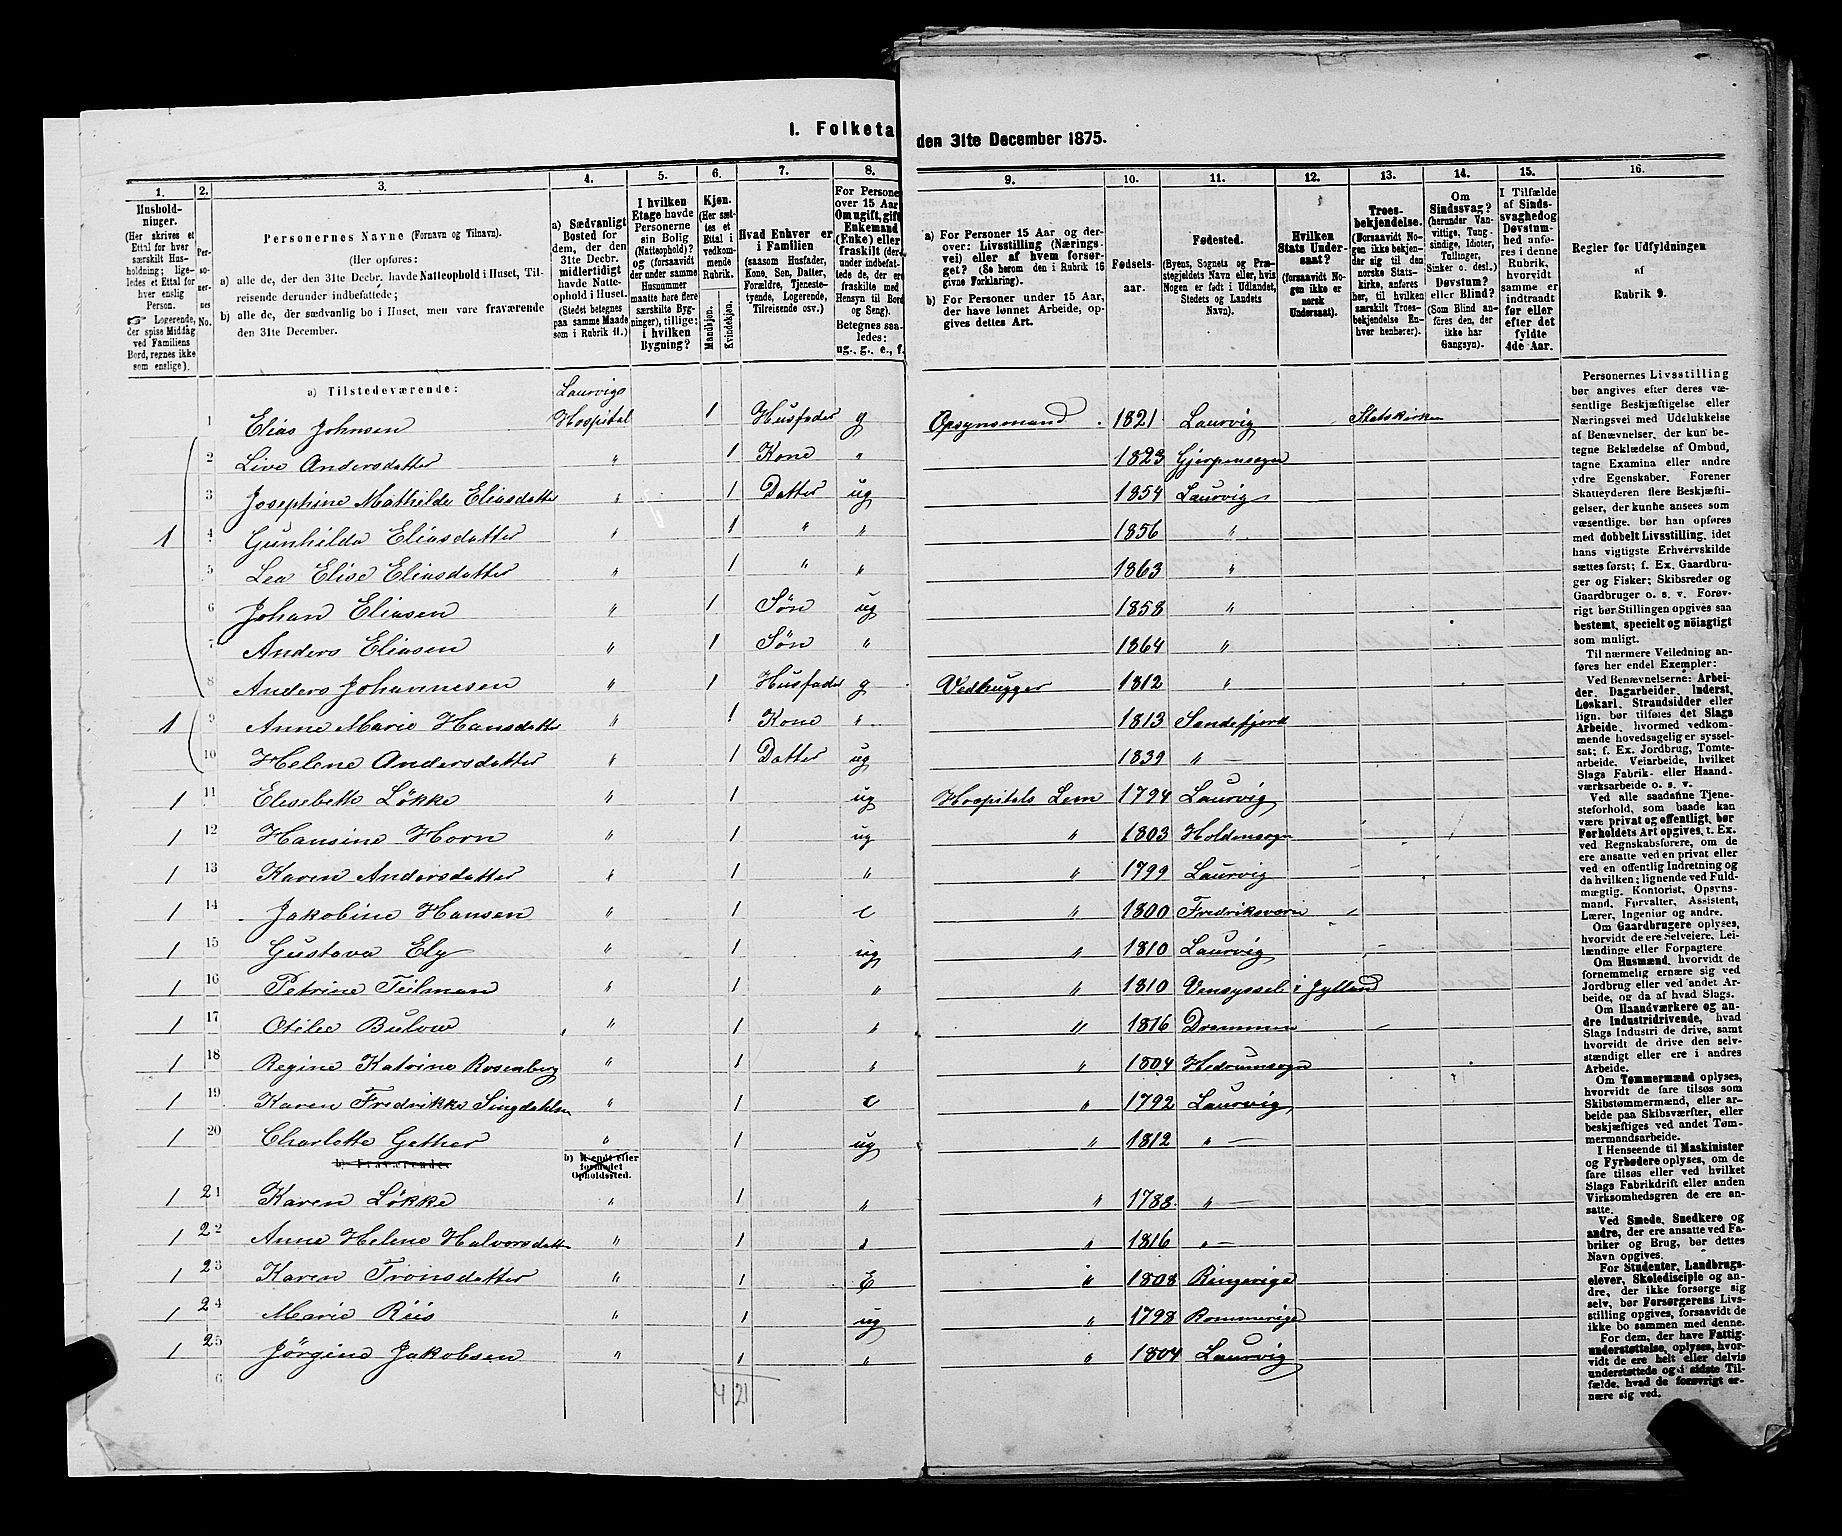 I. Folketa
den 31te December 1875.
1. 2. 3. 4. 5. 6. 7. 8. 9. 10. 11. 12. 13. 14. 15. 16.
Husholdninger.
(Her skrives et
Ettal for hver
særskilt Husholdning;
ligeledes et Ettal for
hver enslig
Person.
☞ Logerende,
der spise Middag
ved Familiens
Bord, regnes ikke
som enslige).
Personernes No.
Personernes Navne (Fornavn og Tilnavn).
(Her opføres:
a) alle, der den 31te Decbr. havde Natteophold i Huset, Tilreisende
derunder indbefattede;
b) alle, der sædvanlig bo i Huset, men vare fraværende
den 31te December.
a) Sædvanligt
Bosted for
dem, der den
31te Decbr.
midlertidigt
havde Natteophold
i Huset.
(Stedet betegnes
paa samme Maade
som i Rubrik 11.)
I hvilken
Etage havde
Personerne
sin Bolig
(Natteophold)?
og (forsaavidt
der under samme
Husnummer
maatte høre flere
særskilte Bygninger),
tillige:
i hvilken
Bygning?
Kjøn.
(Her sættes
et
Ettal i
vedkommende
Rubrik.
Mandkjøn.
Kvindekjøn.
Hvad Enhver er
i Familien
(saasom Husfader,
Kone, Søn, Datter,
Forældre, Tjenestetyende,
Logerende,
Tilreisende osv.)
For Persone
over 15 Aar
Om ugift, gift
Enkemand
(Enke) eller
fraskilt (der
under indbefattede
de, der ere
fraskilte med
Hensyn til Bord
og Seng).
Betegnes saaledes:
ug., g., e., f.
a) For Personer 15 Aar og derover:
Livsstilling (Næringsvei)
eller af hvem forsørget?
(Se herom den i Rubrik 16
givne Forklaring).
b) For Personer under 15 Aar,
der have lønnet Arbeide, opgives
dettes Art.
Fødselsaar.
Fødested.
(Byens, Sognets og Præstegjeldets
Navn eller, hvis
Nogen er født i Udlandet,
Stedets og Landets
Navn).
Hvilken
Stats Undersaat?
(forsaavidt Nogen
ikke er
norsk
Undersaat).
Troesbekjendelse.
(Forsaavidt Nogen
ikke bekjender
sig til den
norske Statskirke,
anføres
her, til hvilken
særskilt Troesbekjendelse
Enhver
henhører).
Om
Sindssvag?
(herunder Vanvittige,
Tungsindige,
Idioter,
Tullinger,
Sinker o. desl.)
Døvstum?
eller Blind?
(Som Blind anføres
den, der
ikke har
Gangsyn).
I Tilfælde
af Sindssvaghed
og
Døvstumhed
anføres
i denne
Rubrik,
hvorvidt
samme er
indtraadt
før eller
efter det
fyldte
4de Aar.
Regler for Udfyldningen
af
Rubrik 9.
a) Tilstedeværende: Laurvigs
1 Elias Johnsen Hospital 1 Husfader g Opsynsmand 1821 Laurvig Statskirken
2 Live Andersdatter " 1 Kone " 1823 Gjerpensogn
3 Josephine Mathilde Eliasdatter " 1 Datter ug 1854 Laurvig
1 4 Gunhilda Eliasdatter " 1 " " 1856 "
5 Lea Elise Eliasdatter " 1 " " 1863 "
6 Johan Eliasen " 1 Søn ug 1858 "
7 Anders Eliasen " 1 Søn " 1864 "
8 Anders Johannesen " 1 Husfader g Vedhugger 1812 "
1 9 Anne Marie Hansdatter " 1 Kone " 1813 Sandefjord
10 Helene Andersdatter " 1 Datter ug 1839 " —
1 11 Elisebette Løkke " 1 ug Hospitals Lem 1794 Laurvig
1 12 Hansine Horn " 1 ug " 1803 Holdensogn
1 13 Karen Andersdatter " 1 " " 1799 Laurvig
1 14 Jakobine Hansen " 1 e " 1800 Fredriksværn
1 15 Gustava Ely " 1 ug " 1810 Laurvig
1 16 Petrine Teilman " 1 " " 1810 Vensyssel i Jylland
1 17 Otilie Bulow " 1 " " 1816 Drammen
1 18 Regine Katrine Rosenberg " 1 " " 1804 Hedrumsogn
1 19 Karen Fredrikke Singdahlsen " 1 e " 1792 Laurvig
1 20 Charlotte Gether " 1 ug " 1812 " —
b) Fraværende: b) Kjendt eller
formodet
Opholdssted.
1 21 Karen Løkke " 1 " " 1788 " —
1 22 Anne Helene Halvorsdatt " 1 " " 1816 " —
1 23 Karen Tronsdatter " 1 E " 1808 Ringerige
1 24 Marie Riis " 1 ug " 1798 Rommerige
1 25 Jørgine Jakobsen " 1 " " 1804 Laurvig
6 4 21
Personernes Livsstilling
bør angives efter deres væsentlige
Beskjæftigelse eller
Næringsvei med Udelukkelse
af Benævnelser, der kun betegne
Beklædelse af Ombud,
tagne Examina eller andre
ydre Egenskaber. Forener
Skatteyderen flere Beskjæftigelser,
der kunne ansees som
væsentlige, bør han opføres
med dobbelt Livsstilling, idet
hans vigtigste Erhvervskilde
sættes først; f. Ex. Gaardbruger
og Fisker; Skibsreder og
Gaardbruger o. s. v. Forøvrigt
bør Stillingen opgives saa
bestemt, specielt og nøiagtigt
som muligt.
Til nærmere Veiledning anføres
her endel Exempler:
Ved Benævnelserne: Arbeider,
Dagarbeider, Inderst,
Løskarl, Strandsidder eller
lign. bør tilføies det Slags
Arbeide, hvormed vedkommende
hovedsagelig er sysselsat;
f. Ex. Jordbrug, Tomtearbeide,
Veiarbeide, hvilket
Slags Fabrik- eller Haandværksarbeide
o. s. v.
Ved alle saadanne Tjenesteforhold,
som baade kan
være privat og offentligt, bør
Forholdets Art opgives, t. Ex.
ved Regnskabsførere, om de
ere ansatte ved en privat eller
ved en offentlig Indretning og
da hvilken; lignende ved Fuldmægtig,
Kontorist, Opsynsmand,
Forvalter, Assistent,
Lærer, Ingeniør og andre.
Om Gaardbrugere oplyses,
hvorvidt de ere Selveiere, Leilændinge
eller Forpagtere
Om Husmænd, hvorvidt de
fornemmelig ernære sig ved
Jordbrug eller ved andet Arbeide,
og da af hvad Slags.
Om Haandværkere og andre
Industridrivende, hvad
Slags Industri de drive, samt
hvorvidt de drive den selvstændigt
eller ere i andres
Arbeide.
Om Tømmermænd oplyses,
hvorvidt de fare tilsøs som
Skibstømmermænd, eller arbeide
paa Skibsværfter, eller
beskjæftiges ved andet Tømmermandsarbeide.
I Henseende til Maskinister
og Fyrbødere oplyses, om de
fare tilsøs eller ved hvilket
Slags Fabrikdrift eller anden
Virksomhedsgren de ere ansatte.
Ved Smede, Snedkere og
andre, der ere ansatte ved Fabriker
og Brug, bør dettes
Navn opgives.
For Studenter, Landbrugselever,
Skoledisciple og andre,
der ikke forsørge sig
selv, bør Forsørgerens Livsstilling
opgives, forsaavidt de
ikke bo sammen med denne.
For dem, der have Fattigunderstøttelse,
oplyses, hvorvidt
de ere helt eller delvis
understøttede og i sidste Tilfælde,
hvad de forøvrigt ernære
sig ved.